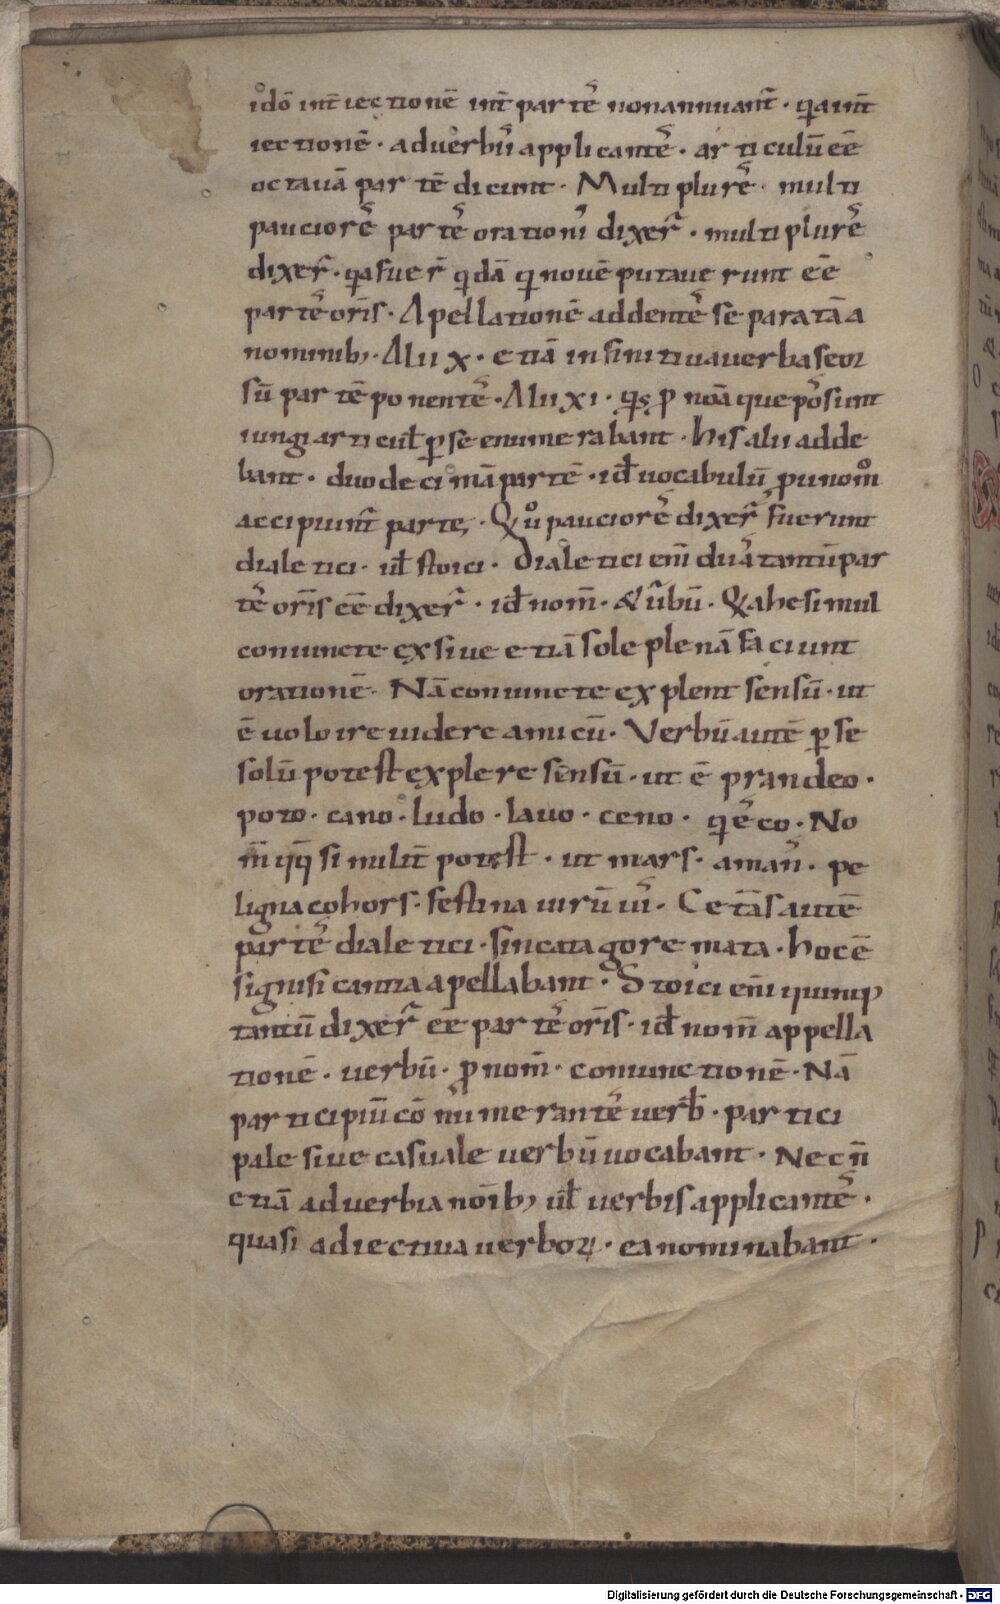 idō int̄ iectionē int̄ partē nonannuant̄ · q̄a int̄
iectionē · aduerbiū applicantē · articulū eē
octauā partē dicunt · Multi plurē · multi
pauciorē partē orationī dixer̄ · multi plurē
dixer̄ · q̄a fuer̄ q̄dā q̄ nouē putauerunt eē
partē orīs · Apellationē addentē separatā a
nominib; · Alii x · etiā infinitiua uerba seor
sū partē ponentē · Alii xi · q̄s p̄ noā que pos̄sunt
iungi articul̄ p̄ se enumerabant · his alii adde
bant · duodecimā partē · id̄ uocabulū p̄ nom̄
accipiunt̄ parte, · Qū pauciorē dixer̄ fuerunt
dialetici · ul̄ stoici · Dialetici enī duā tantū par
tē orīs eē dixer̄ · id̄ nom̄ · & ūbū · Q̄a he simul
coniuncte exsiue etiā sole plenā faciunt
orationē · Nā coniuncte explent sensū · ut
ē uolo ire uidere amicū · Verbū autē p̄ se
solū potest explere sensū · ut ē prandeo ·
poto · cano · ludo · lauo · ceno · q̄ēco · No
m̄ qq̄ similit̄ potest · ut mars · aman̄ · pe
ligna cohors · festina uirū uī · Cetās autē
partē dialetici · sincatagoremata · hoc ē
significantia apellabant · Stoici enī quinq;
tantū dixer̄ eē partē orīs · id̄ nom̄ appella
tionē · uerbū · p̄ nom̄ · coniunctionē · Nā
participiū cō nūmerantē uerb̄ · partici
pale siue casuale uerbū uocabant · Nec n̄
etiā aduerbia noīb; ul̄ uerbis applicantē ·
quasi adiectiua uerboꝝ · ea nominabant ·
Digitalisierung gefördert durch die Deutsche Forschungsgemeinschaft - DFG